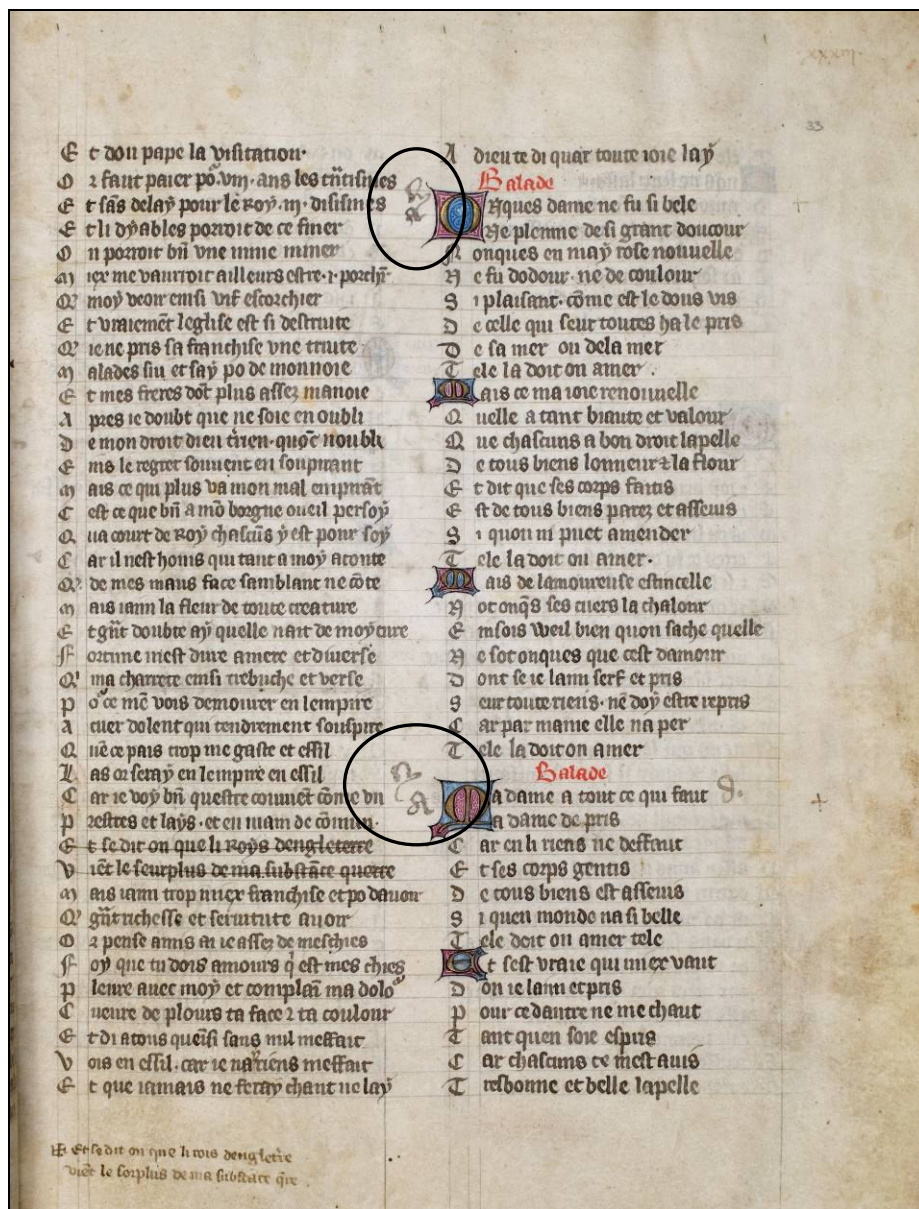 xxxiii
33
E t dou pape la visitation·
O ꝛ faut paier po͛·viij· ans les cn̄tisīnes
E t sās delaẏ pour le Roẏ·iij· disisīnes
E t li dẏables porroit de ce finer
O n porroit bn̄ vne mine miner
M iex me vaurroit ailleurs estre·i·porchr̄
Q moẏ veoir einsi vif escorchier
E t vraiemēt leglise est si destruite
Q ie ne pris sa franchise vne truite
M alades sui et saẏ po de monnoie
E t mes freres dōt plus assez manoie
A pres ie doubt que ne soie en oubli
D e mon droit dieu
E ins le regret souuent en souspirant
M ais ce qui plus va mon mal empirāt
C est ce que bn̄ a mō borgne oueil persoẏ
Q ua court de Roẏ chascūs ẏ est pour soẏ
C ar il nest homs qui tant a moẏ aconte
Q de mes maus face samblant ne cōte
M ais iaim la fleur de toute creature
E t gn̄t doubte aẏ quelle nait de moẏ cure
F ortune mest dure amere et diuerse
Q ma charrete einsi trebuche et verse
P o͛ ce mē vois demourer en lempire
A cuer dolent qui tendrement souspire
Q uē ce pais trop me gaste et essil
L as or seraẏ en lempire en essil
C ar ie voẏ bn̄ questre couuēt cōme vn
P restres et laẏs·et en main de cōmun·
E t se dit on que li Roẏs dengleterre
V iēt le seurplus de ma substāce querre
M ais iaim trop miex franchise et po dauoir
Q gn̄t richesse et seruitute auoir
O ꝛ pense amis ai ie assez de meschies
F oẏ que tu dois amours q̄ est mes chies
P leure auec moẏ et complaī ma dolo͛
C ueure de plours ta face ⁊ ta coulour
E t di a tous queīsi sans nul meffait
V ois en essil·car ie naẏ riens meffait
E t que iamais ne feraẏ chant ne laẏ
✠ Et se dit on que li rois dengletr̄e
viēt le sorplus de ma substāce q̄re
A dieu te di quar toute ioie laẏ
Balade
O Nques dame ne fu si bele
Ne plenne de si grant doucour
N onques en maẏ rose nouuelle
N e fu dodour·ne de coulour
S i plaisant·cōme est le dous vis
D e celle qui seur toutes ha le pris
D e sa mer ou dela mer
T ele la doit on amer·
M ais ce ma ioie renouuelle
Q uelle a tant biaute et valour
Q ue chascuns a bon droit lapelle
D e tous biens lonneur ⁊ la flour
E t dit que ses corps faitis
E st de tous biens parez et asseuis
S i quon ni puet amender
T ele la doit on amer·
M ais de lamoureuse estincelle
N ot onq̄s ses cuers la chalour
E insois weil bien quon sache quelle
N e sot onques que cest damour
D ont se ie laim serf et pris
S eur toute riens·nē doẏ estre repris
C ar par mame elle na per
T ele la doit on amer
Balade
M a dame a tout ce qui faut
a dame de pris
C ar en li riens ne deffaut
E t ses corps gentis
D e tous biens est asseuis
S i quen monde na si belle
T ele doit on amer tele
E t sest vraie qui miex vaut
D on ie laim et pris
P our ce dautre ne me chaut
T ant quen soie espris
C ar chascuns ce mest auis
T resbonne et belle lapelle